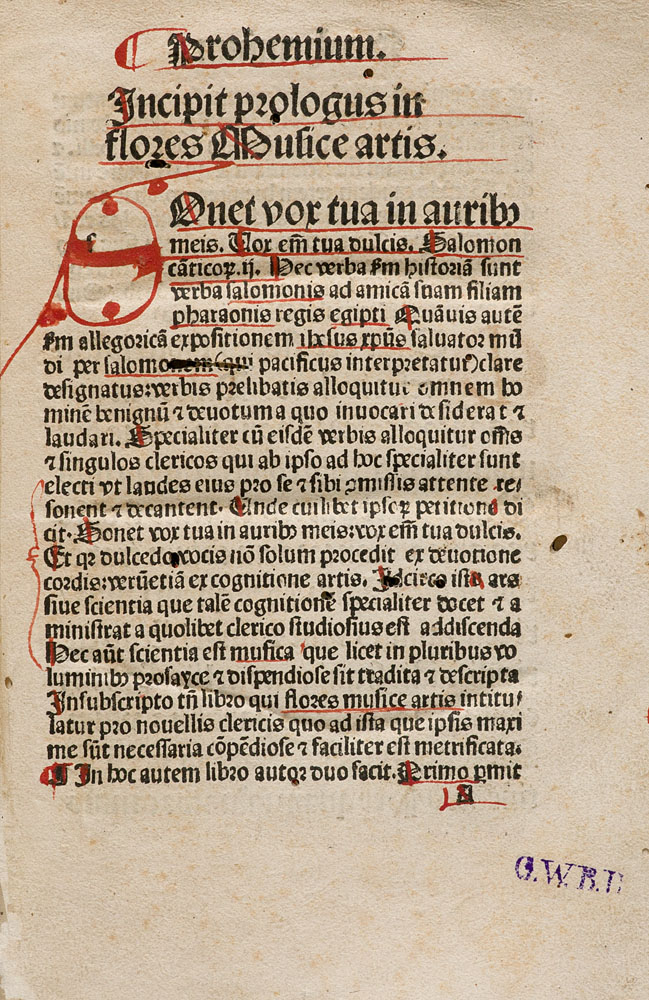 Prohemium.
Incipit prologus in
flores Musice artis.
SOnet vox tua in auribꝰ
meis. Vox em̃ tua dulcis. Salomon
cāticoꝝ. ij. Hec verba ẜm historiā sunt
verba salomonis ad amicā suam filiam
pharaonis regis egipti Quāuis autē
ẜm allegoricā expositionem ihesus xp̄us saluator mū
di per salomonem (qui pacificus interpretatur) clare
designatus: verbis prelibatis alloquitur omnem ho
minē benignū ⁊ deuotum a quo inuocari desiderat ⁊
laudari. Specialiter cū eisdē verbis alloquitur om̄s
⁊ singulos clericos qui ab ipso ad hoc specialiter sunt
electi vt laudes eius pro se ⁊ sibi ꝯmissis attente re-
sonent ⁊ decantent. Unde cuilibet ipsoꝝ petitione di
cit. Sonet vox tua in auribꝰ meis: vox em̃ tua dulcis.
Et qꝛ dulcedo vocis nō solum procedit ex deuotione
cordis: verūetiā ex cognitione artis. Idcirco ista ars
siue scientia que talē cognitionē specialiter docet ⁊ a
ministrat a quolibet clerico studiosius est addiscenda
Hec aūt scientia est musica que licet in pluribus vo
luminibꝰ prosayce ⁊ dispendiose sit tradita ⁊ descripta
Insubscripto tn̄ libro qui flores musice artis intitu-
latur pro nouellis clericis quo ad ista que ipsis maxi
me sūt necessaria cōpēdiose ⁊ faciliter est metrificata.
¶ In hoc autem libro autoꝛ duo facit. Primo p̄mit
A
G.W.B.L